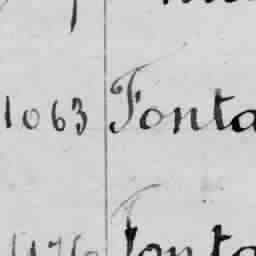 1063 Fonta
Fonta